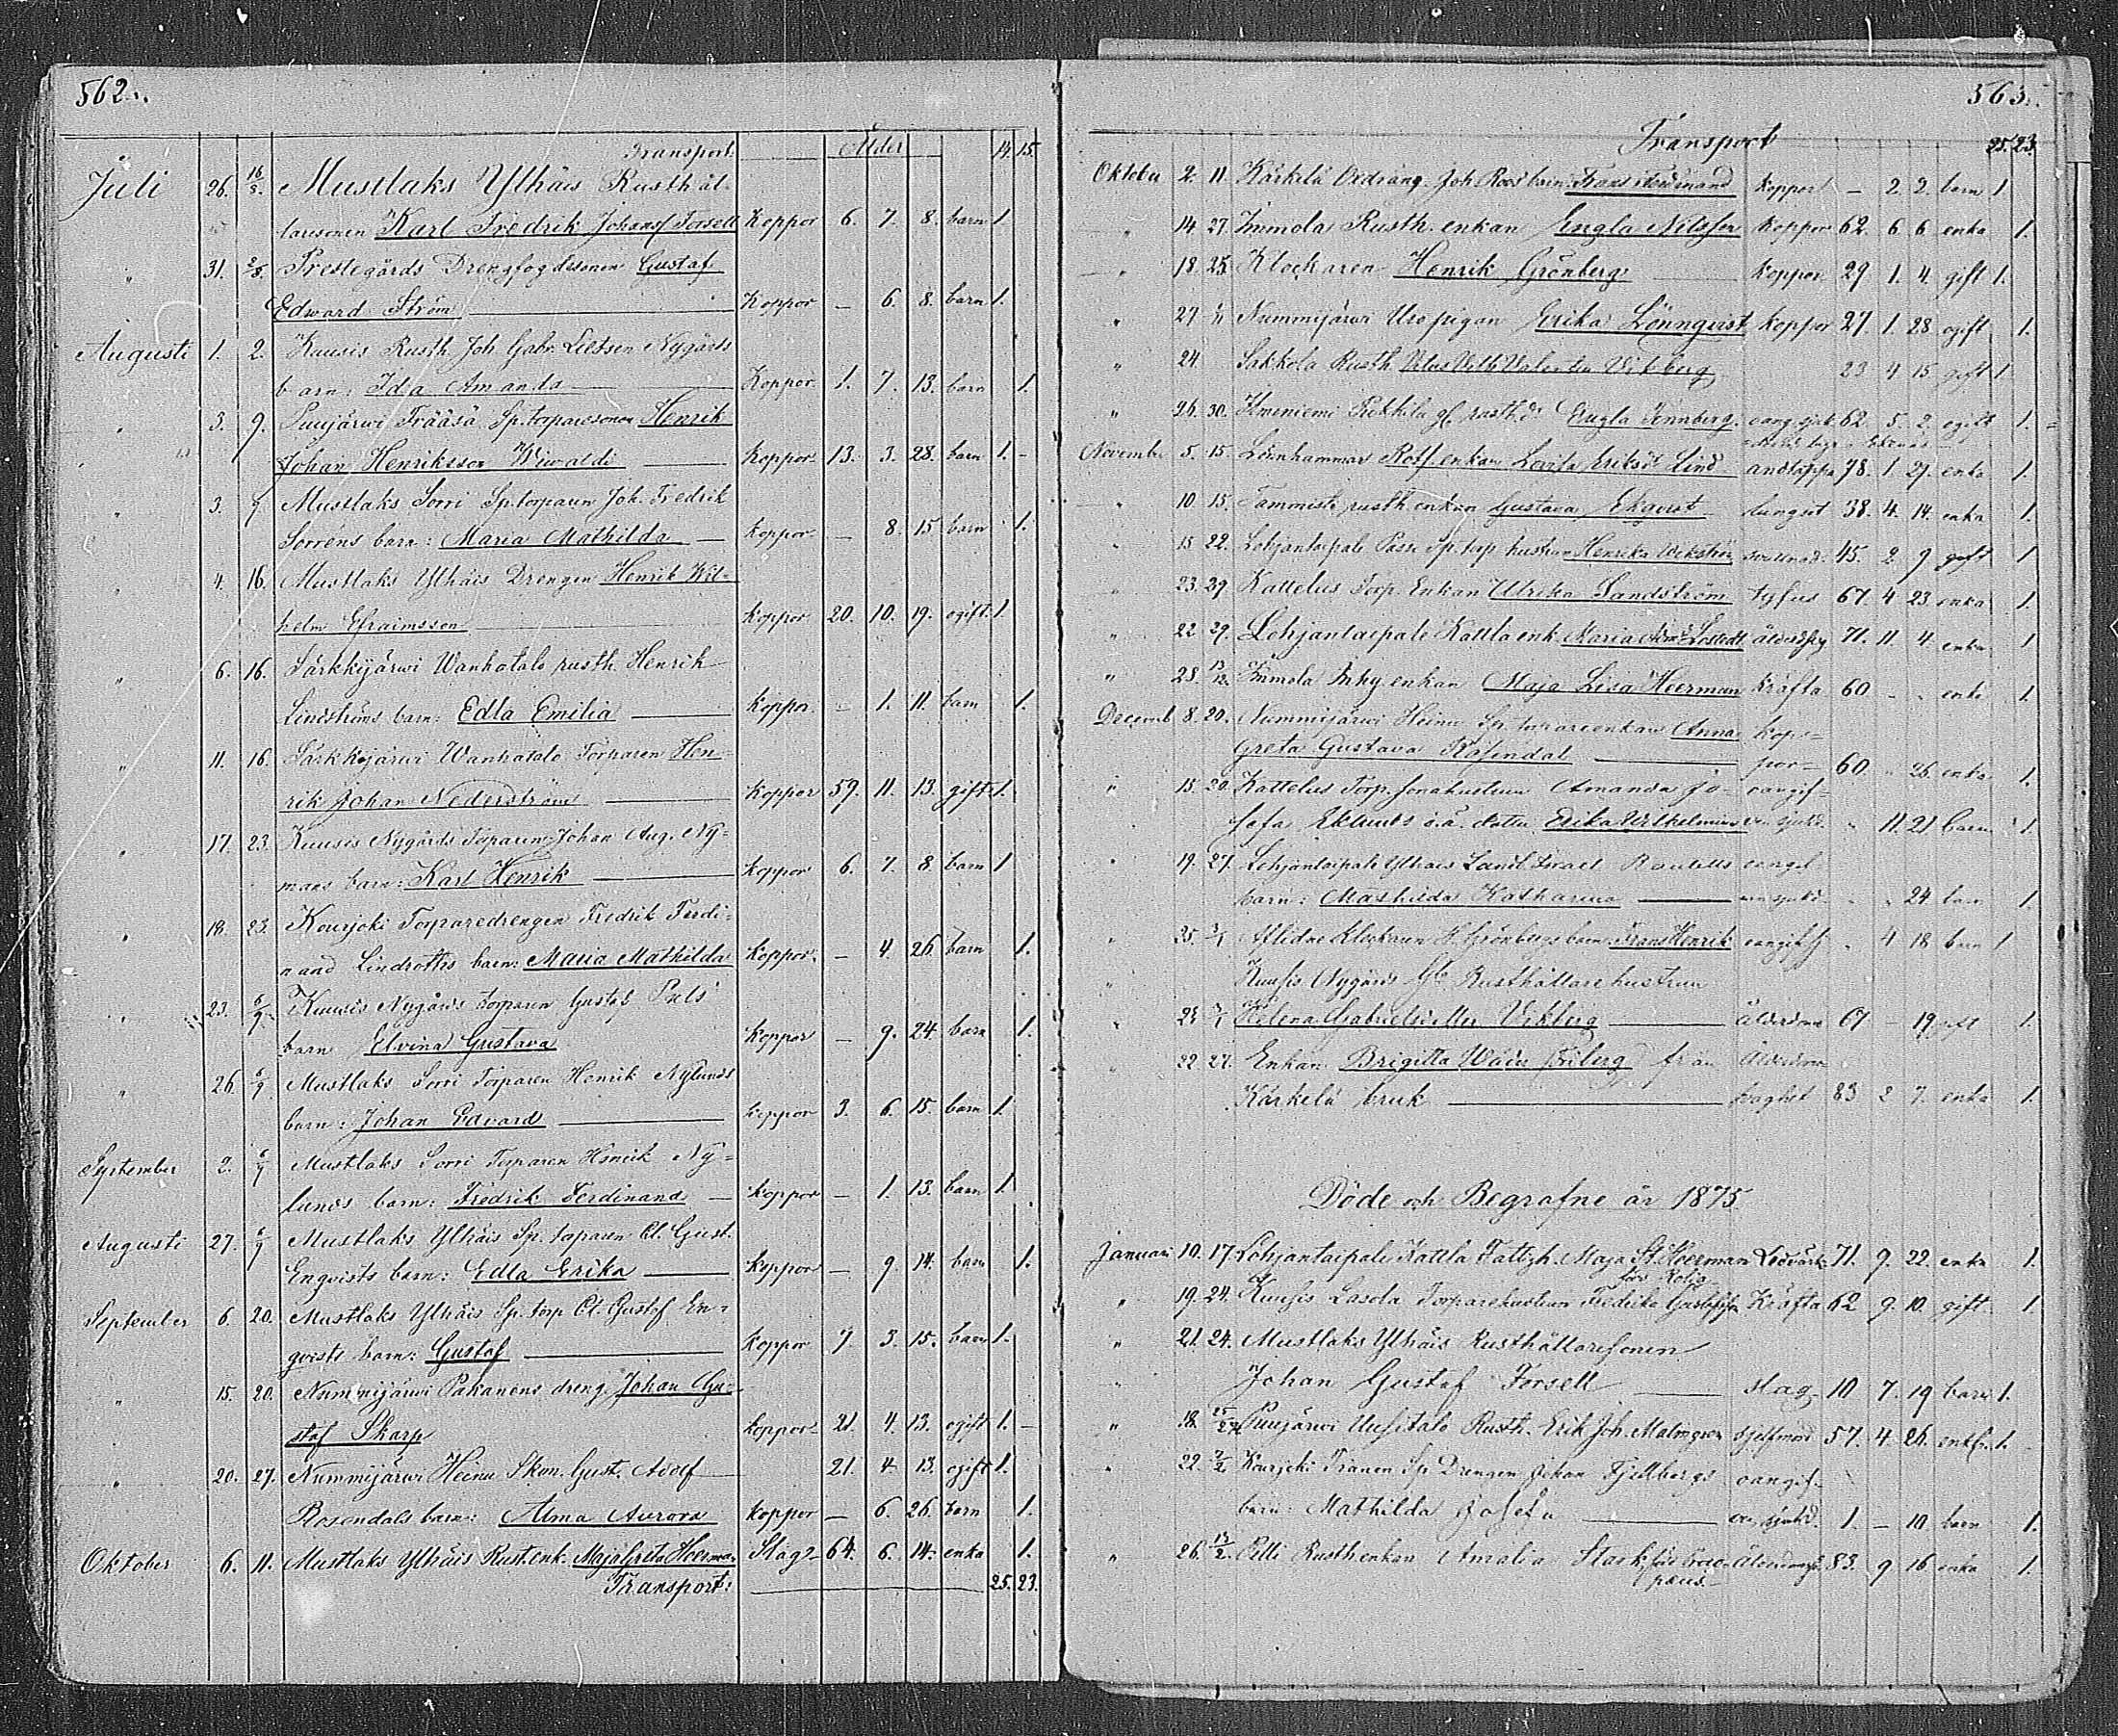 562.
Transport. Ålder 14. 15.
Juli 26. 16/8. Mustlaks Ylhäis Rusthål-
laresonen Karl Fredrik Johansf Forsell Koppor 6. 7. 8. barn 1.
" 31. 2/8. Prestegårds Drengfogdesonen Gustaf
Edward Ström Koppor — 6. 8. barn 1.
Augusti 1. 2. Kuusis Rusth. Joh. Gabr. Nygårds
barn: Ida Amanda Koppor 1. 7. 13. barn 1.
" 3. 9. Puujärwi Frääsä Sp. torparesonen Henrik
Johan Henriksson Wiwaldi Koppor 13. 3. 28. barn 1. -
" 3. 9. Mustlaks Sorri Sp. torparen Joh. Fredrik
Sorréns barn: Maria Mathilda — koppor — 8. 15 barn 1.
" 4. 16. Mustlaks Ylhäis Drengen Henrik Wil-
helm Efraimsson koppor 20. 10. 19. ogift. 1.
" 6. 16. Särkkijärwi Wanhatalo rusth. Henrik
Lindströms barn: Edla Emilia Koppor. - 1. 11. barn 1.
" 11. 16. Särkkijärwi Wanhatalo Torparen Hen-
rik Johan Nederström koppor 59. 11. 13. gift 1.
" 17. 23. Kuusis Nygårds Torparen Johan Aug. Ny=
mans barn: Karl Henrik koppor 6. 7. 8 barn 1
" 18. 23. Kourjoki Torparedrengen Fredrik Ferdi-
nand Lindroths barn: Maria Mathilda koppor. — 4. 26 barn 1.
" 23. 6/9 Kuusis Nygårds torparen Gustaf
barn Elvina Gustava koppor — 9. 24. barn 1.
" 26. 6/9 Mustlaks Sorri Torparen Henrik Nylunds
barn: Johan Edvard koppor 3. 6. 15. barn 1.
September 2. 6/9 Mustlaks Sorri Torparen Henrik Ny=
lunds barn: Fredrik Ferdinand — koppor — 1. 13. barn 1.
Augusti 27. 6/9 Mustlaks Ylhäis Sp. torparen Cl. Gust.
Enqvists barn: Edla Erika koppor — 9. 14. barn 1.
September 6. 20. Mustlaks Ylhäis Sp. torp. Cl. Gustaf En-
qvists barn: Gustaf koppor 7 3. 15. barn 1.
" 15. 20. Nummijärwi Pakanens dreng. Johan Gu-
staf Skarp koppor 21. 4. 13. ogift 1. -
" 20. 27. Nummijärwi Heinu Skom. Gust. Adolf 21. 4. 13. ogift 1.
Rosendals barn: Alma Aurora koppor — 6. 26. barn 1.
Oktober 6. 11. Mustlaks Ylhäis Rust.enk. Maja Greta Heerman Slag 64. 6. 14. enka 1.
Transport: 25. 23.
563.
Transport 25. 23.
Oktober 2. 11. Kärkelä Joh. Roos barn: Frans Ferdinand koppor — 2. 2. barn 1.
" 14 27. Immola Rusth. enkan Engla Nilsson koppor 62. 6 6 enka 1.
" 18. 25. Klockaren Henrik Grönberg koppor 29 1. 4. gift 1.
" 27 1/11 Nummijärwi pigan Erika Lönnqvist koppor 27. 1. 28 ogift 1.
" 24. Sakkola Rusth. Wikberg 23 4 15 gift 1
" 26. 30. gl. rusth. dr Engla 62. 5. 2. ogift 1.
November 5. 15. Lönnhammar enkan Lovisa Eriksd Lind andtäppa 78. 1 21. enka 1.
" 10 15. Tammisto rusth. enkan Gustava Ekqvist lungsot 38. 4. 14. enka 1.
" 15 22. Lohjantaipale Passi Sp. torp. hustrun Henrika 45. 2 9 gift 1
" 23. 29. Kattelus Torp. Enkan Ulrika Sandström tyfus 67. 4 23. enka 1.
" 22 29. Lohjantaipale Kattla enk. Maria 71. 11. 4. enka 1
" 28. 13/12. Immola Inhy. enkan Maja Lisa Heerman kräfta 60 - - enka 1.
Decemb 8. 20. Nummijärwi Heinu Sp. torpareenkan Anna kop=
Greta Gustava Rosendal por= 60. " 26. enka 1.
" 15. 20. Kattelus Torp. sonahustrun Amanda Jo- oangif=
sefa Eklunds o.ä. dotter Erika Wilhelmina ven sjukd. " 11. 21 barn 1.
" 19. 27. Lohjantaipale Ylhäis oangif
barn: Mathilda Katharina ven sjukd. " " 24. barn 1.
" 25. 3/1 Aflidne Klockaren H. Grönbergs barn Frans Henrik oangif " 4 18 barn 1
" Kuusis Nygårds Gl. Rusthållarehustrun
" 25 3/1 Helena Gabrielsdotter Wikberg ålderdom 61 — 19 gift 1.
" 22 27. Enkan Brigitta Friberg från Ålderdom
Kärkelä bruk svaghet 83 2 7. enka 1.
Döde och Begrafne år 1875
Januari 10. 17. Lohjantaipale Kattla Fattigh. Maja St. Heerman 71. 9. 22. enka 1.
" 19. 24. Kuusis Lasola Torparehustrun Fredrika Gustafsson Kräfta 62 9. 10. gift 1
" 21. 24. Mustlaks Ylhäis Rusthållaresonen
Johan Gustaf Forsell slag 10 7. 19 barn 1.
" 18. 25/24 Puujärwi Uusitalo Rusth. Erik Joh. Malmgren sjelfmord 57. 4. 26. 1.
" 22. 7/2 Kourjoki Sp. Drengen Johan Fjellbergs oangif-
barn: Mathilda Josefa ven sjukd. 1. — 10 barn 1.
" 26. 13/2. Pelli Rusthenkan Amalia Stark 83. 9 16 enka 1.